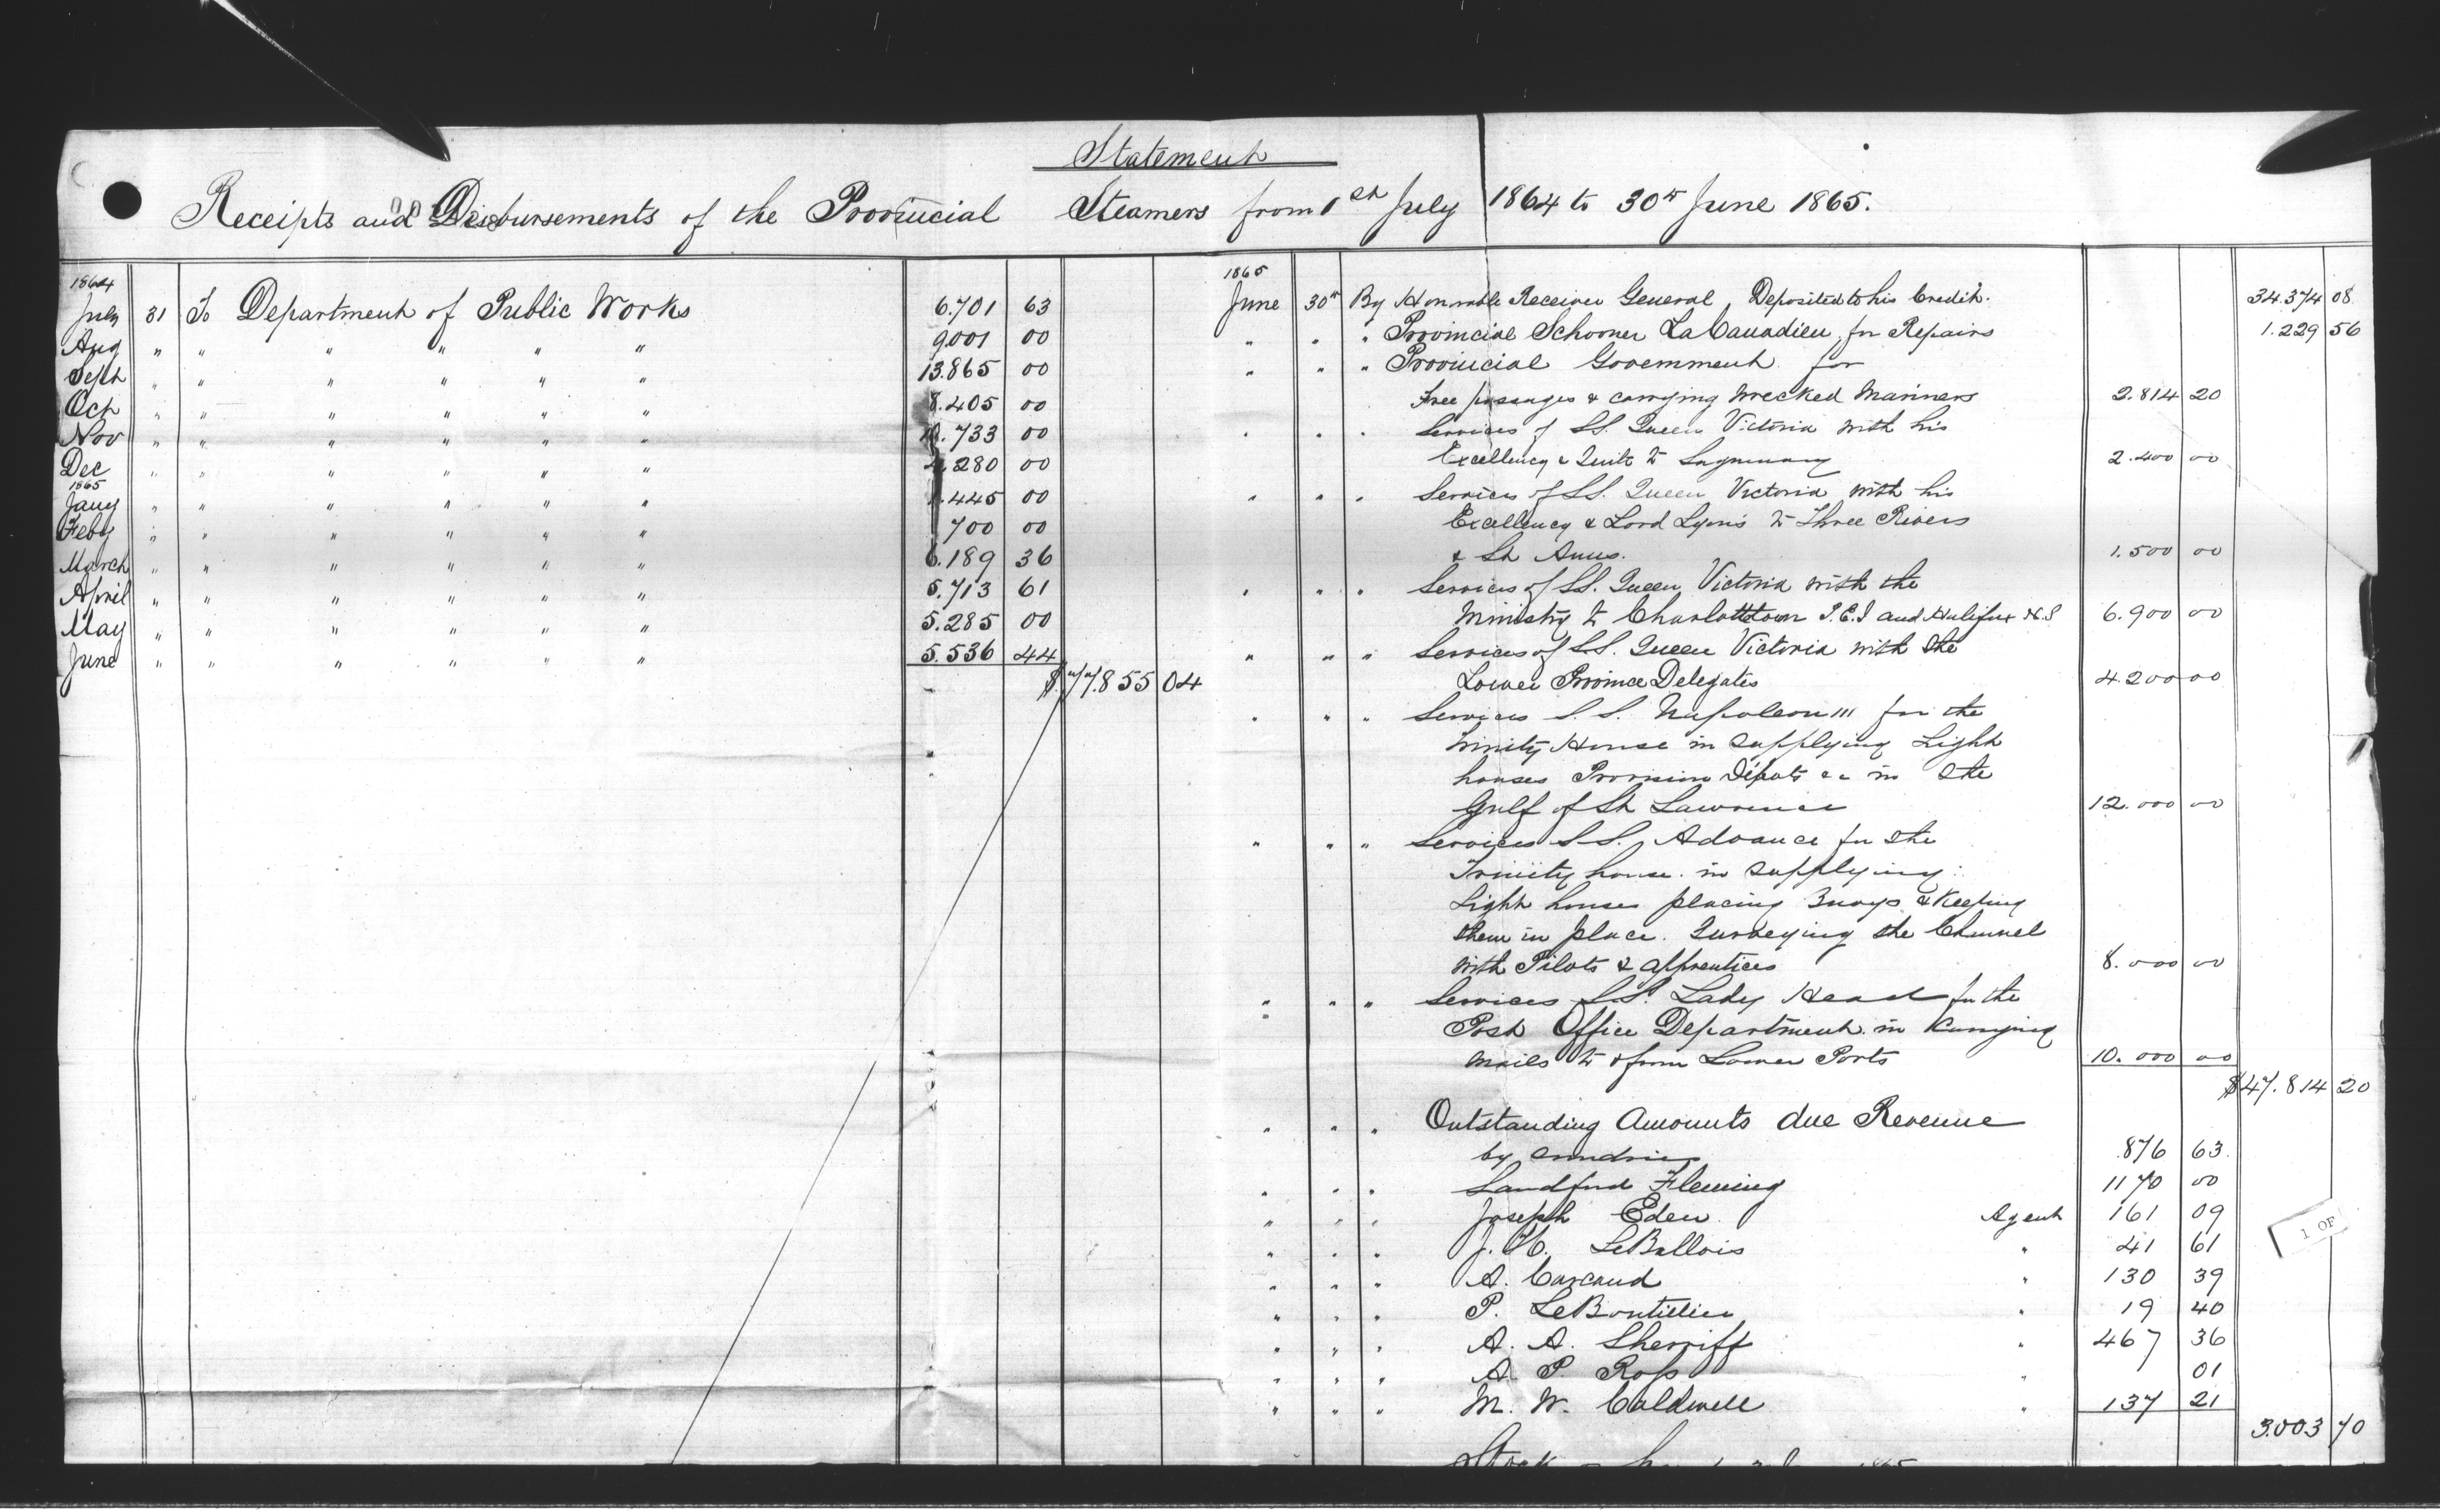 Statement
Receipts and Disbursements of the Provincial Steamers from 1st July 1864 to 30th June 1865.
1864
July 31 To Department of Public Works 6.701 63
Aug " " " " " " 9001 00
Sept " " " " " " 13.865 00
Oct " " " " " " 8.405 00
Nov " " " " " " 10.733 00
Dec " " " " " " 4.280 00
1865
Jany " " " " " " 1.445 00
Feby " " " " " " 700 00
March " " " " " " 6.189 36
April " " " " " " 5.713 61
May " " " " " " 5.285 00
June " " " " " " 5.536 44
$77.855 04
1865
June 30th By Honorable Receiver General, Deposited to his Credit. 34.374 08
" " " Provincial Schooner La Canadien, for Repairs 1.229 56
" " " Provincial Government for
Free passages & carrying Wrecked Mariners 2.814 20
" " " Services of SS. Queen Victoria with his
Excellency & Suite to 2.400 00
" " " Services of SS. Queen Victoria with his
Excellency & Lord Lyons to Three Rivers
& St Anns. 1.500 00
" " " Services of SS. Queen Victoria with the
Ministry to Charlottetown P.E.I and Halifax N.S 6.900 00
" " " Services of S.S. Queen Victoria with the
Lower Province Delegates 4200 00
" " " Services S.S. Napoleon III for the
Trinity House in supplying Light
houses Provision Dépots &c in the
Gulf of St Lawrence 12.000 00
" " " Services S S. Advance for the
Trinity house. in supplying
Light houses placing Buoys & Keeping
them in place. Surveying the Channel
with Pilots & apprentices 8.000 00
" " " Services S.S. Lady Head for the
Post Office Department in Carrying
Mails to & from Lower Ports 10.000 00
$47.814 20
" " " Outstanding Amounts due Revenue
by Sundries 876 63.
" " " Sandford Fleming 1170 00
" " " Joseph Eden Agent 161 09
" " " J. LeBallois " 41 61
" " " A. Carcaud " 130 39
" " " P. LeBoutillier " 19 40
" " " A. A. Sherriff " 467 36
" " " A P. Ross " 01
" " " M. W. Caldwell " 137 21
3.003 70
1 OF
Stock